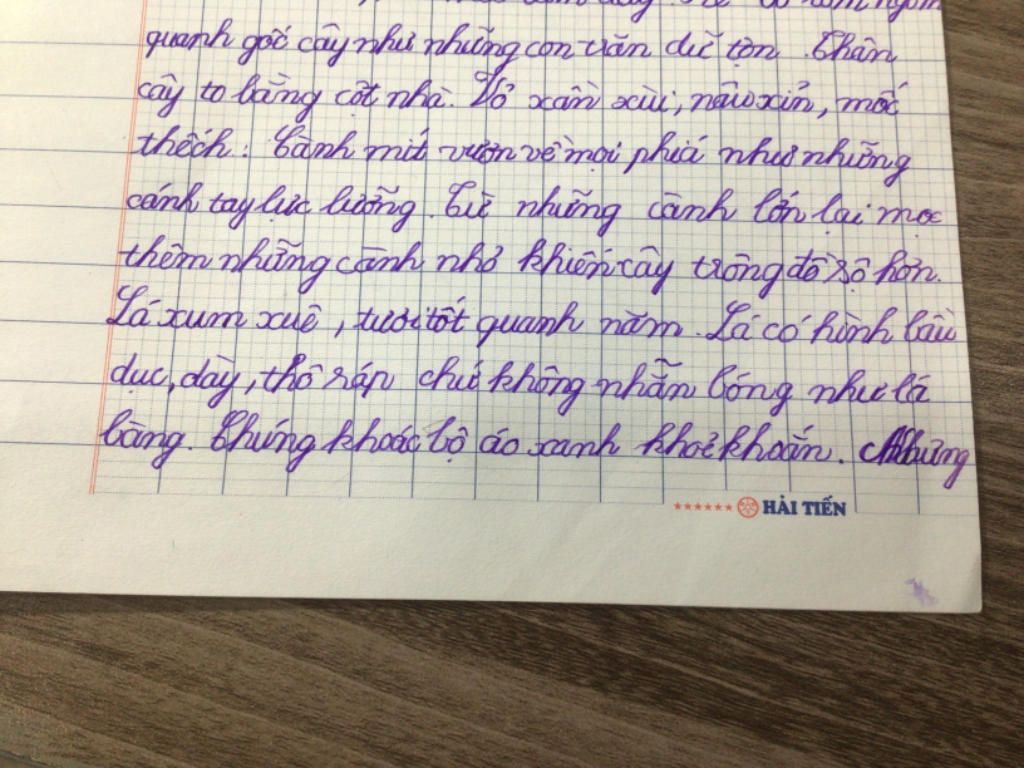 quanh gốc cây như những con trăn dữ tợn. Thân
cây to bằng cột nhà. Vỏ xần xùi, nâu xỉn, mốc
thếch. Cành mít vươn về mọi phía như những
cánh tay lực lưỡng. Từ những cành lớn lại mọc
thêm những cành nhỏ khiến cây trông đồ sộ hơn.
Lá xum xuê, tươi tốt quanh năm. Lá có hình bầu
dục, dày, thô ráp chứ không nhẵn bóng như lá
bàng. Chúng khoác bộ áo xanh khoẻ khoắn. Những
HẢI TIẾN